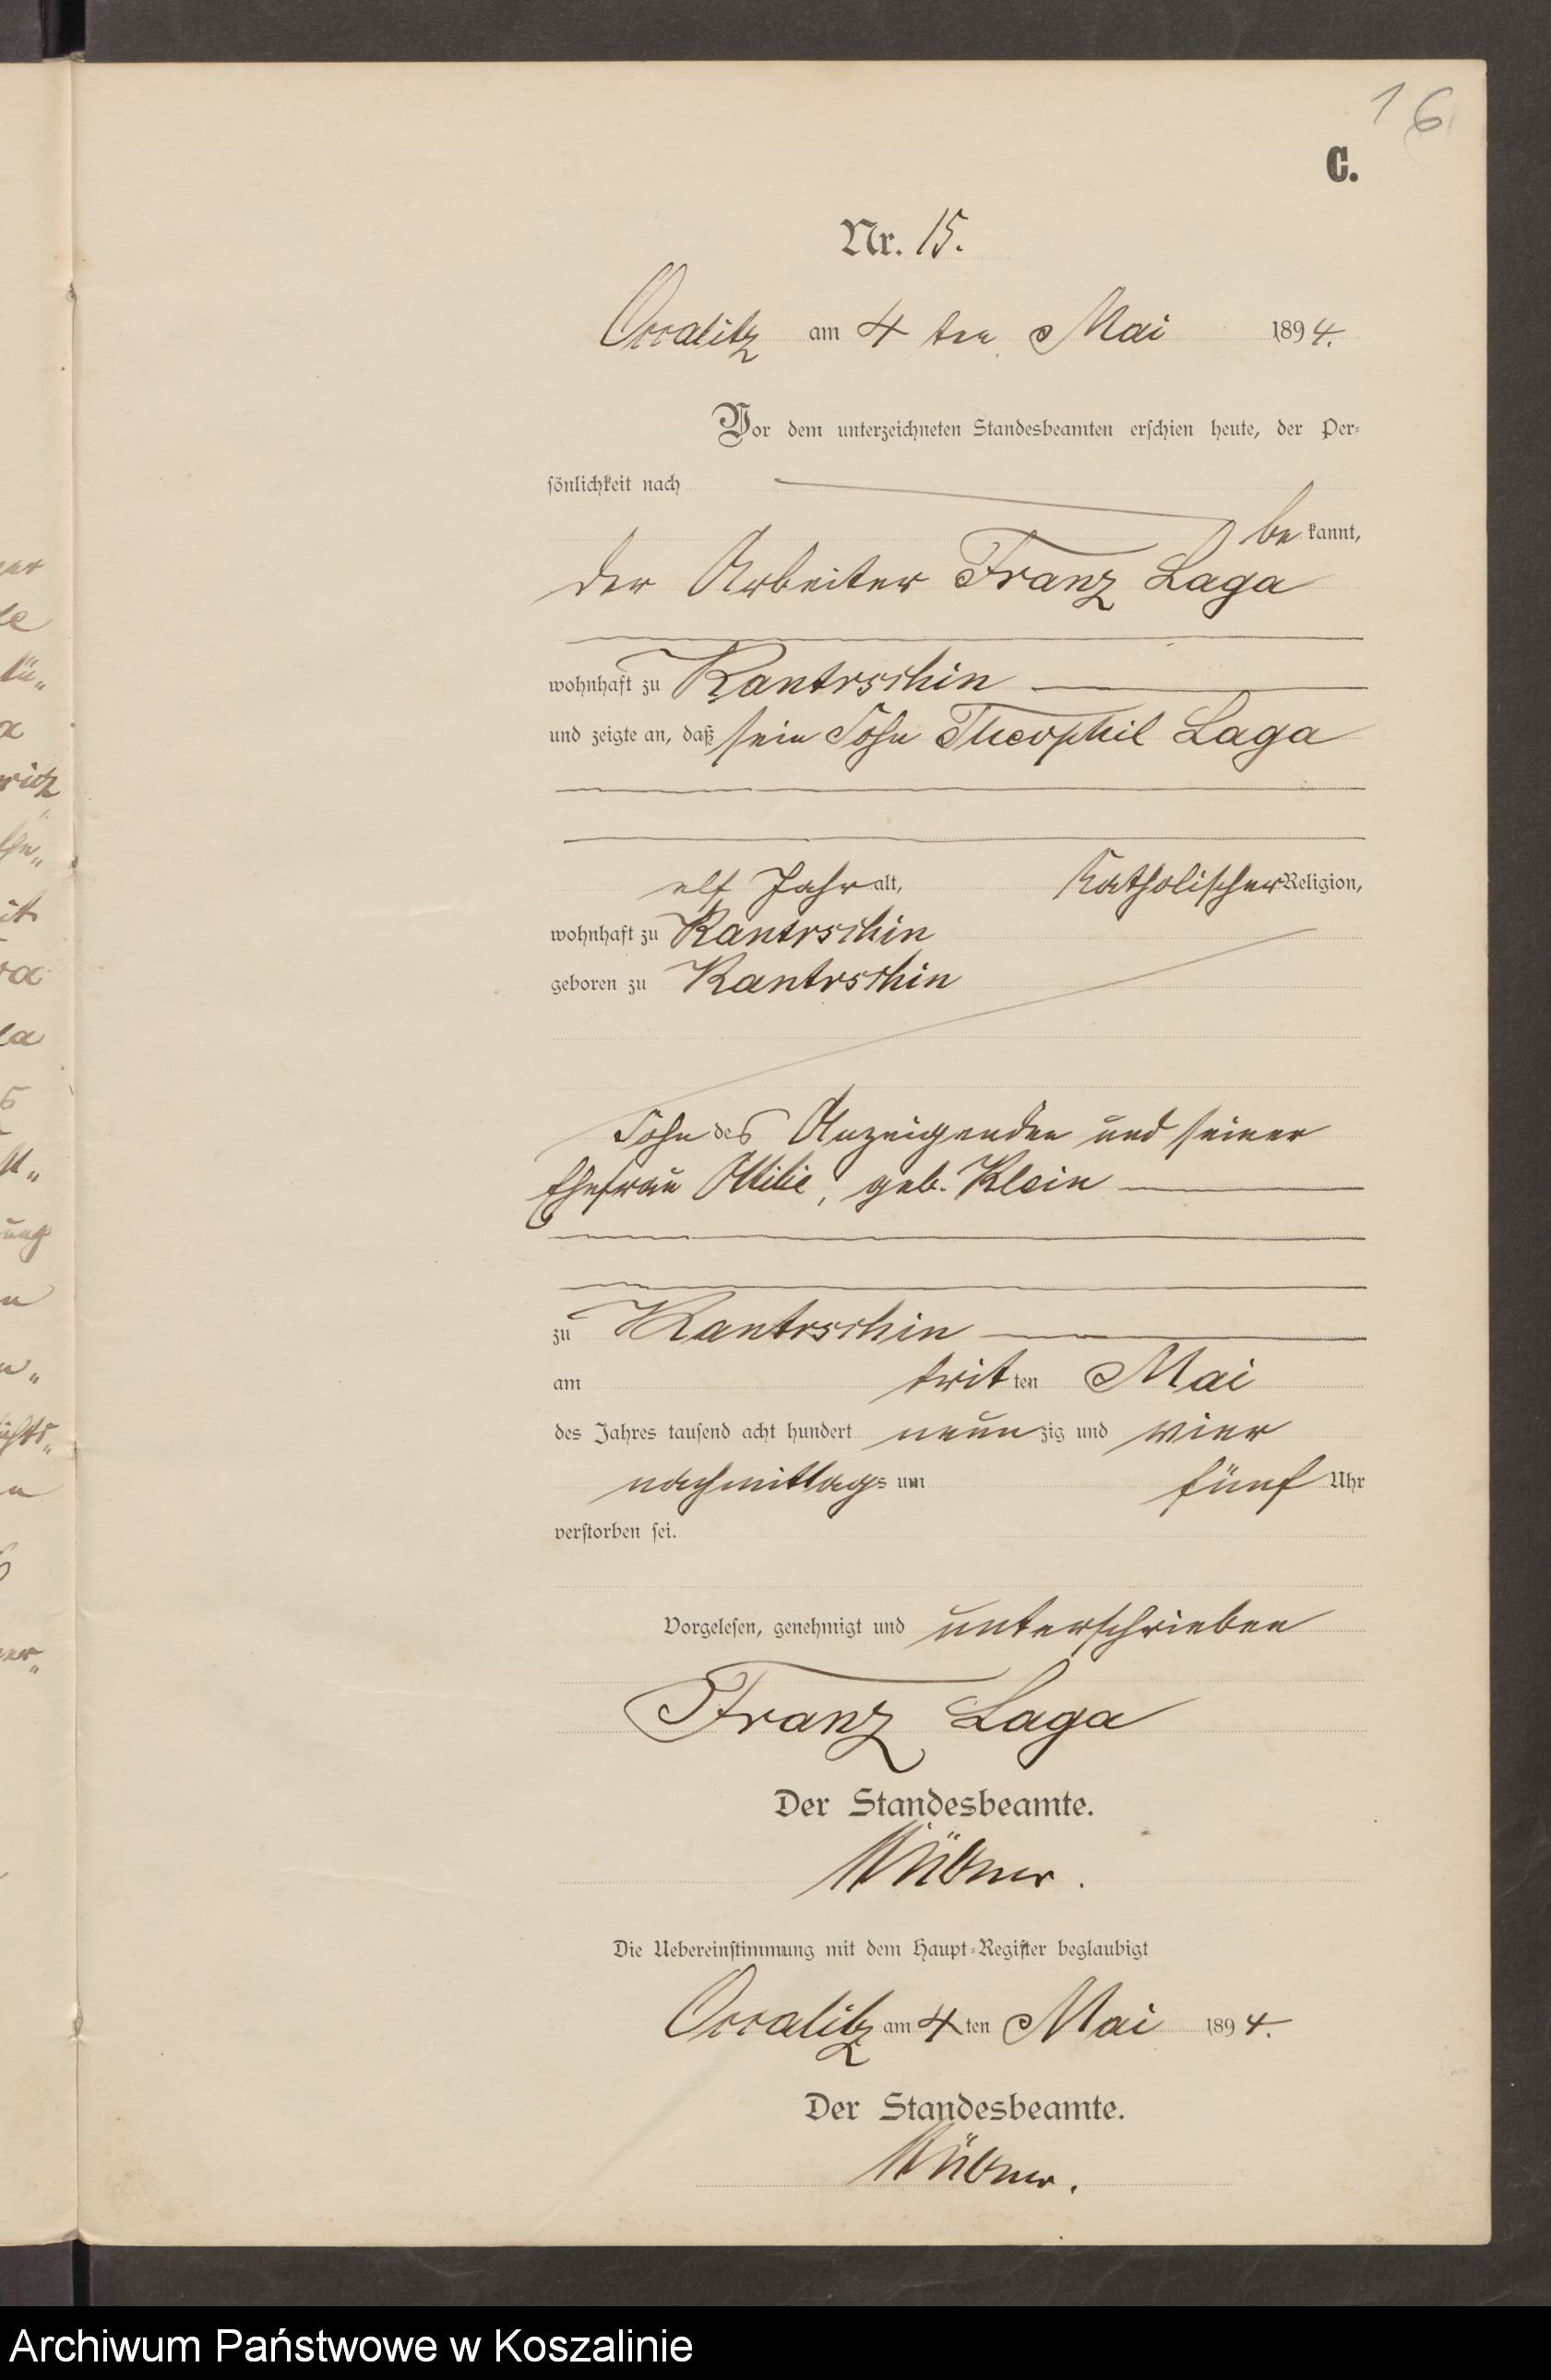 16
C.
Nr. 15.
Occalitz am 4 ten Mai 1894.
Vor dem unterzeichneten Standesbeamten erschien heute, der Per-
sönlichkeit nach
be kannt,
der Arbeiter Franz Laga
wohnhaft zu Kantrschin
und zeigte an, daß sein Sohn Theophil Laga
elf Jahr alt, Katholischer Religion,
wohnhaft zu Kantrschin
geboren zu Kantrschin
Sohn des Anzeigenden und seiner
Ehefrau Ottilie, geb. Klein
zu Kantrschin
am dritten Mai
des Jahres tausend acht hundert neunzig und vier
nachmittags um fünf Uhr
verstorben sei.
Vorgelesen, genehmigt und unterschrieben
Franz Laga
Der Standesbeamte.
Die Uebereinstimmung mit dem Haupt-Register beglaubigt
Occalitz am 4ten Mai 1894.
Der Standesbeamte.
Archiwum Państwowe w Koszalinie